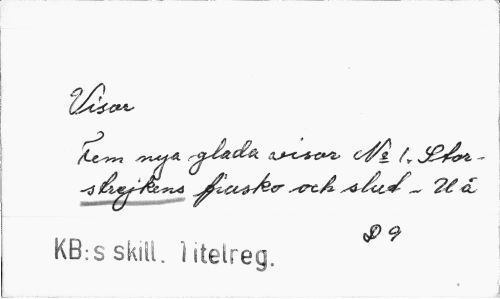 Visor
Fem nya glada visor № 1. Stor-
strejkens fiusko och slut – U å
D 9
KB:s skill. Titelreg.